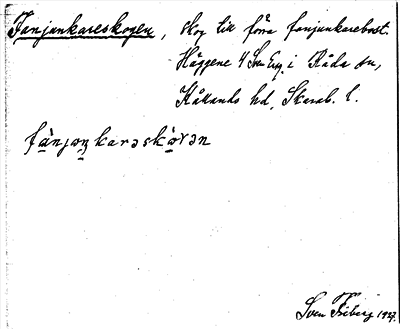 Fanjunkareskogen, skog till förra fanjunkarebost.
Häggene 4 Sven Eng. i Råda sn,
Kållands hd, Skarab. l.
fanjoŋkarəskóvən
Sven Friberg 1927.